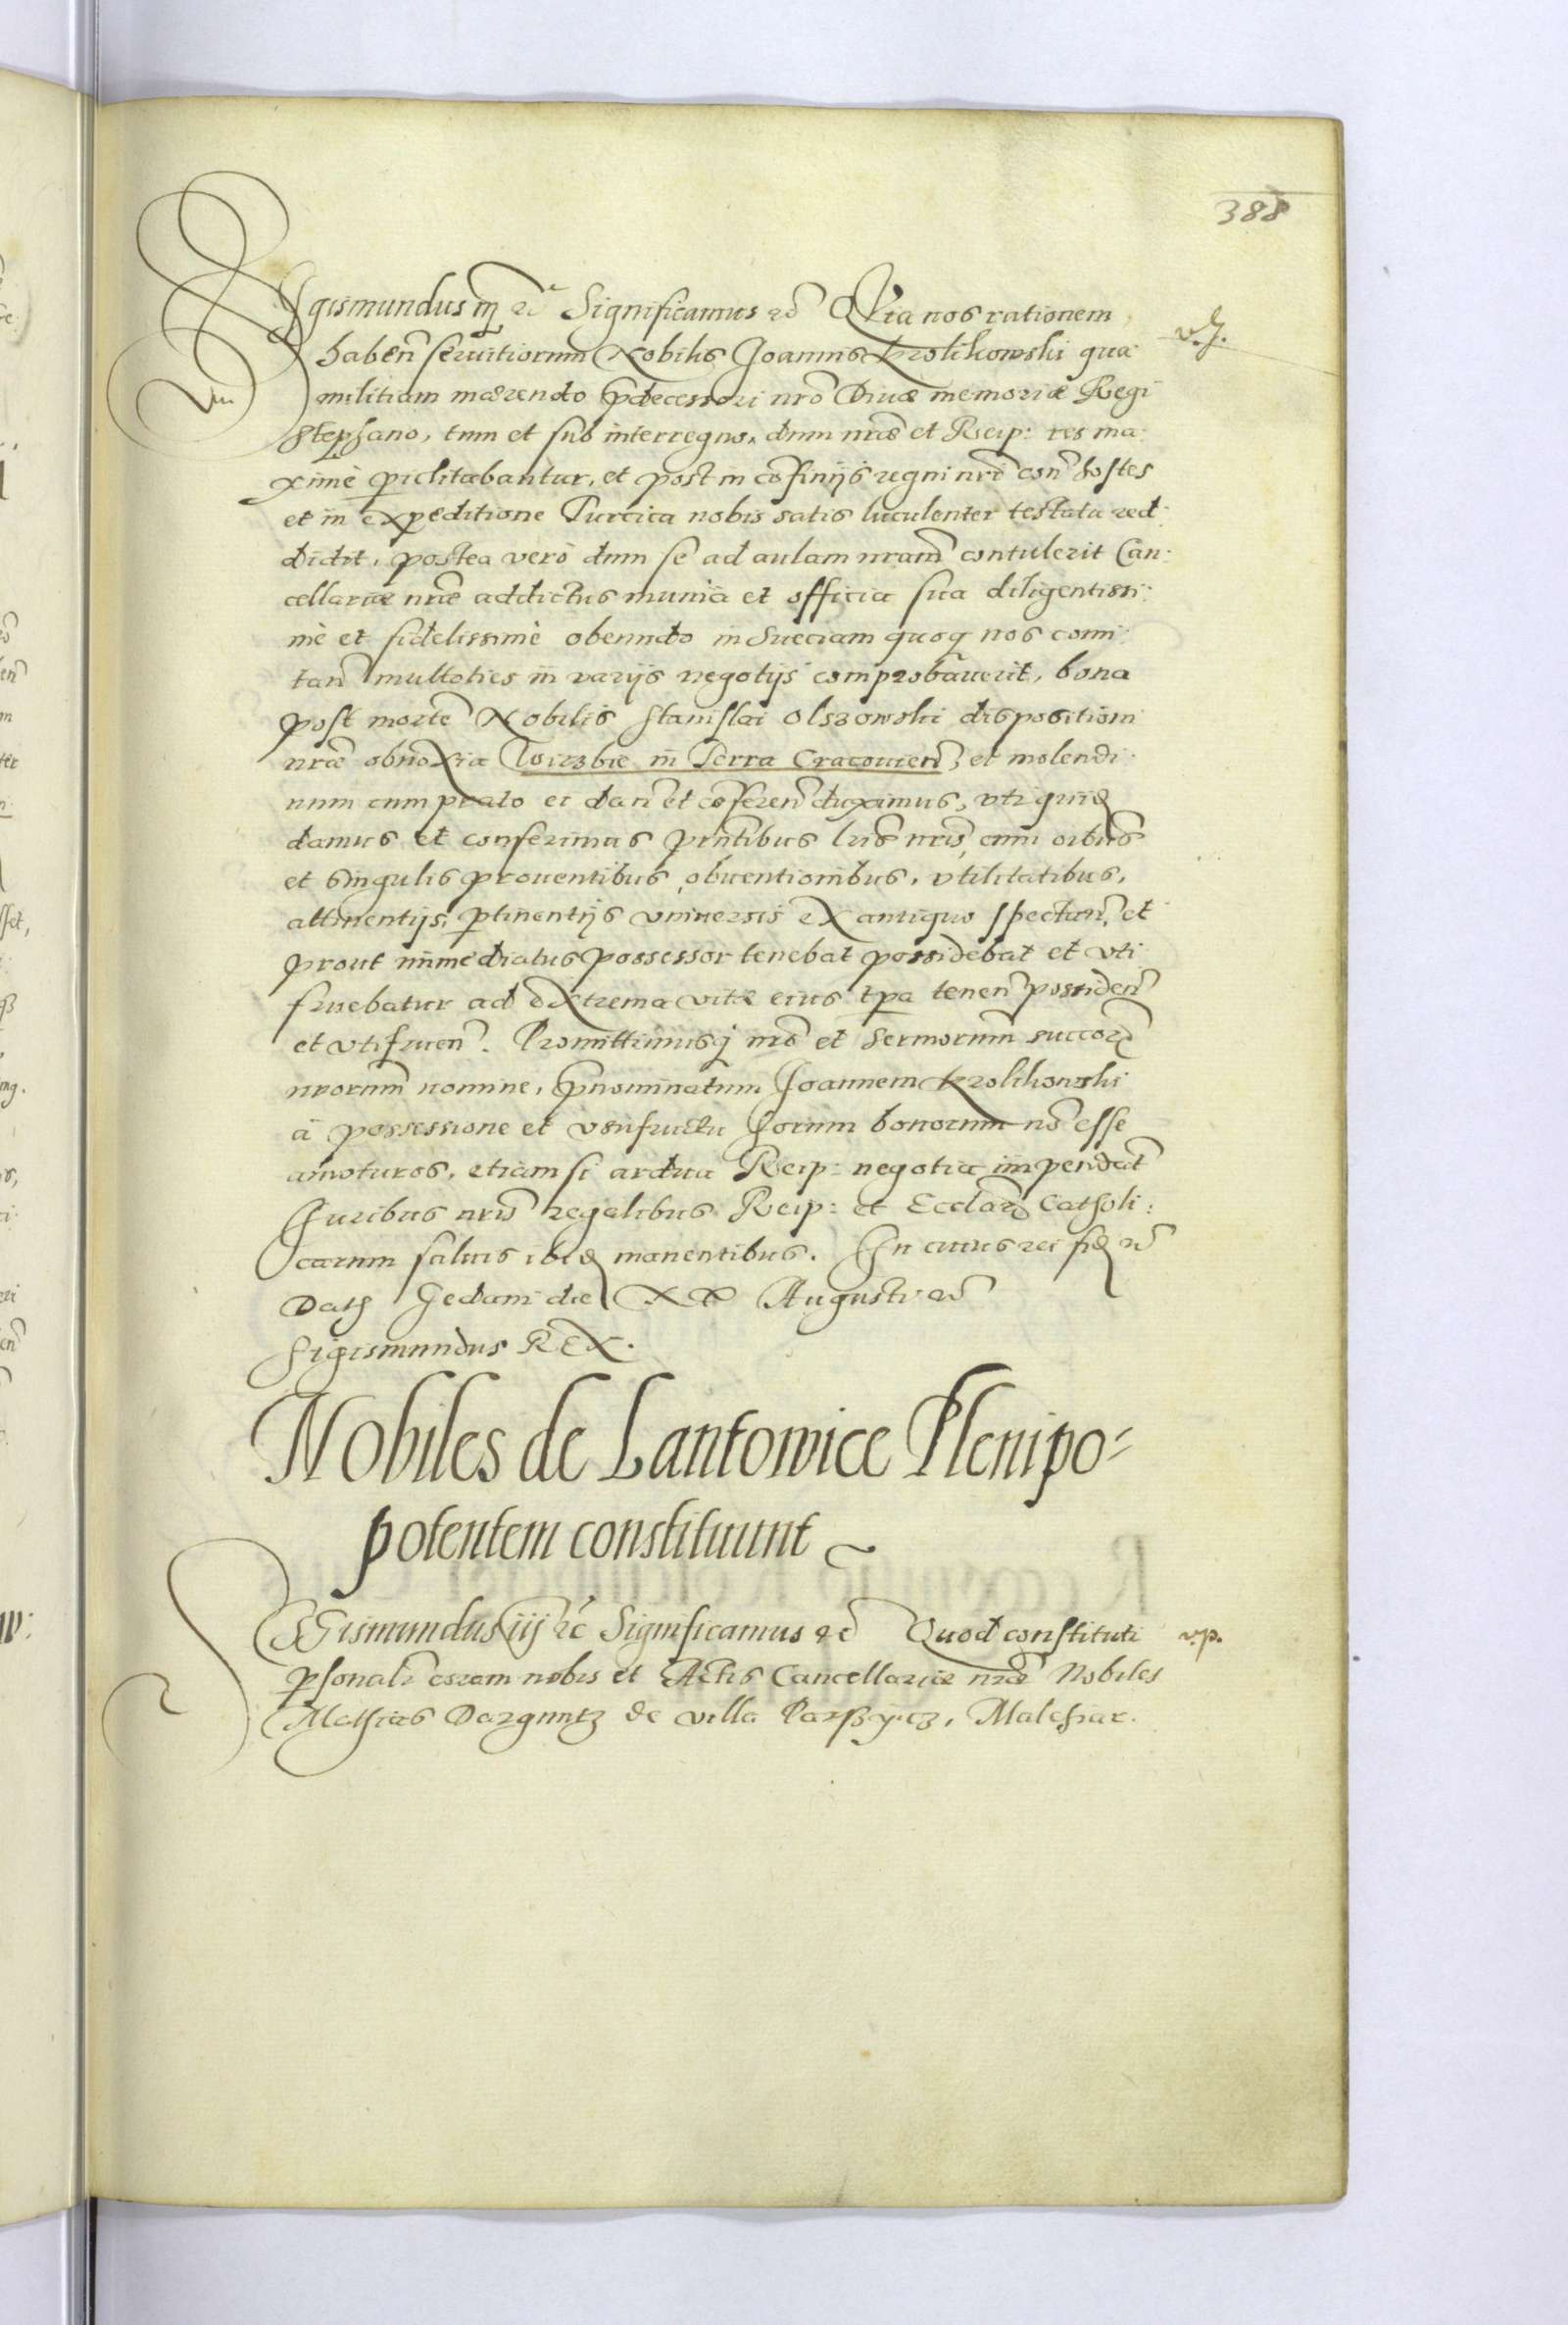 388
Sigismundus iij etc Significamus etc Quia nos rationem
haben̄ seruitiorum Nobilis Joannis Krolikowski quæ
militiam mærendo p̄decessori nr̄o Diuæ memoriæ Regi
Stephano, tum et sub interregno, dum nr̄æ et Reip: res ma:
ximè p̱iclitabantur, et post in cōfinijs regni nr̄i con̄ hostes
et in expeditione Turcica nobis satis luculenter testata red:
didit, postea verò dum se ad aulam nr̄am contulerit Can:
cellariæ nr̄æ addictus munia et officia sua diligentissi:
mè et fidelissimè obeundo in Sueciam quoq nos comi:
tan̄ multoties in varijs negotijs comprobauerit, bona
post mortē Nobilis Stanislai Olszowski dispositioni
nr̄æ obnoxia Wirzbie in Terra Cracouien̄, et molendi:
num cum prato ei dan̄ et cōferen̄ duximus, vti quidē
damus et conferimus p̄ntibus lr̄is nr̄is, cum oībus
et singulis prouentibus, obuentionibus, vtilitatibus,
attinentijs, p̱tinentijs vniuersis ex antiquo spectan̄, et
prout immediatus possessor tenebat possidebat et vti
fruebatur ad extrema vitæ eius tp̄a tenen̄ possiden̄
et vtifruen̄. Promittimusq̨ nr̄o et Sermorum succor̄
nrorum nomine, p̄nominatum Joannem Krolikowski
à possessione et vsufructu horum bonorum nō esse
amoturos, etiam si ardua Reip: negotia impendat̄
Juribus nr̄is regalibus Reip: et Ecclar̄ Catholi:
carum saluis ibidē manentibus. In cuius rei fidē etc
Dat̄ Gedani die XX Augusti etc
Sigismundus REX.
v. J.
Nobiles de Lantowice Plenipo-
potentem constituunt
SIGismundus iij etc Significamus etc Quod constituti
p̱sonalr̄ coram nobis et Actis Cancellariæ nr̄æ Nobiles
Mathias Darguntz de villa Parßÿcz, Malchiar.
v. p.